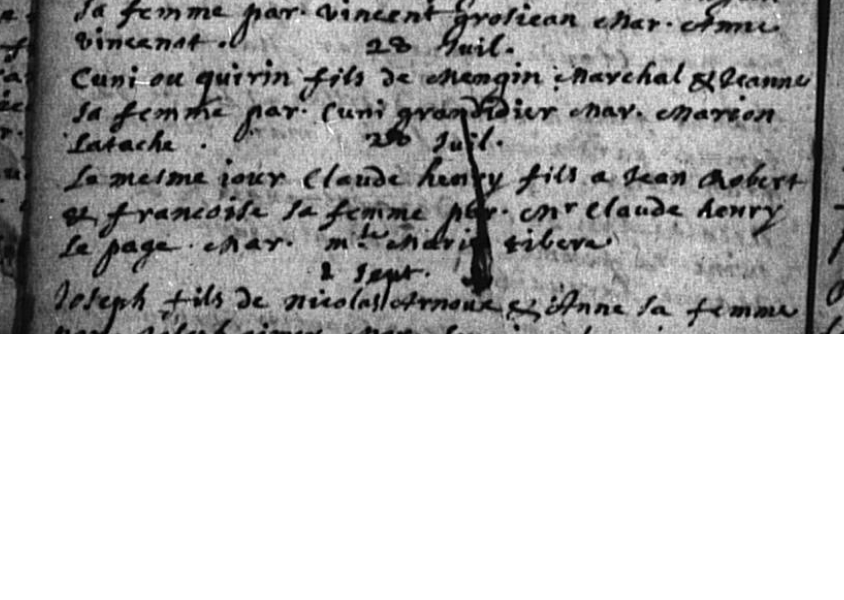 sa femme par. vincent grosiean Mar. Anne
vincenot.
28 Juil.
Cuni ou quirin fils de Mengin Marchal & Jeanne
sa femme par. Cuni grandidier Mar. Marion
Latache.
28 Juil.
Le mesme iour Claude henry fils a Jean Robert
& francoise sa femme par. Mr Claude henry
le page. Mar. mlle Marie tibere
2 Sept.
Joseph fils de nicolas Arnoux & Anne sa femme